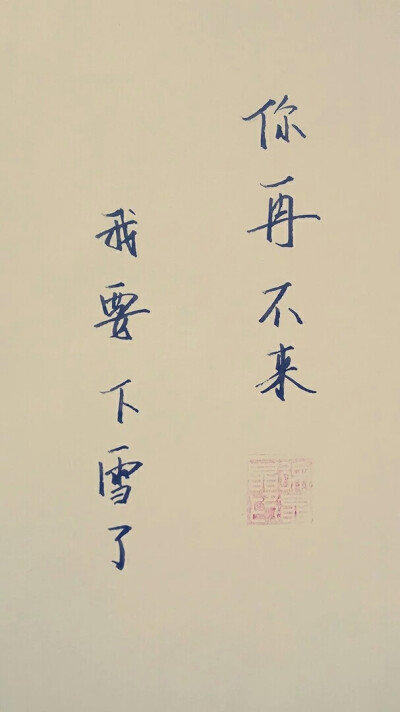 你再不来
我要下雪了